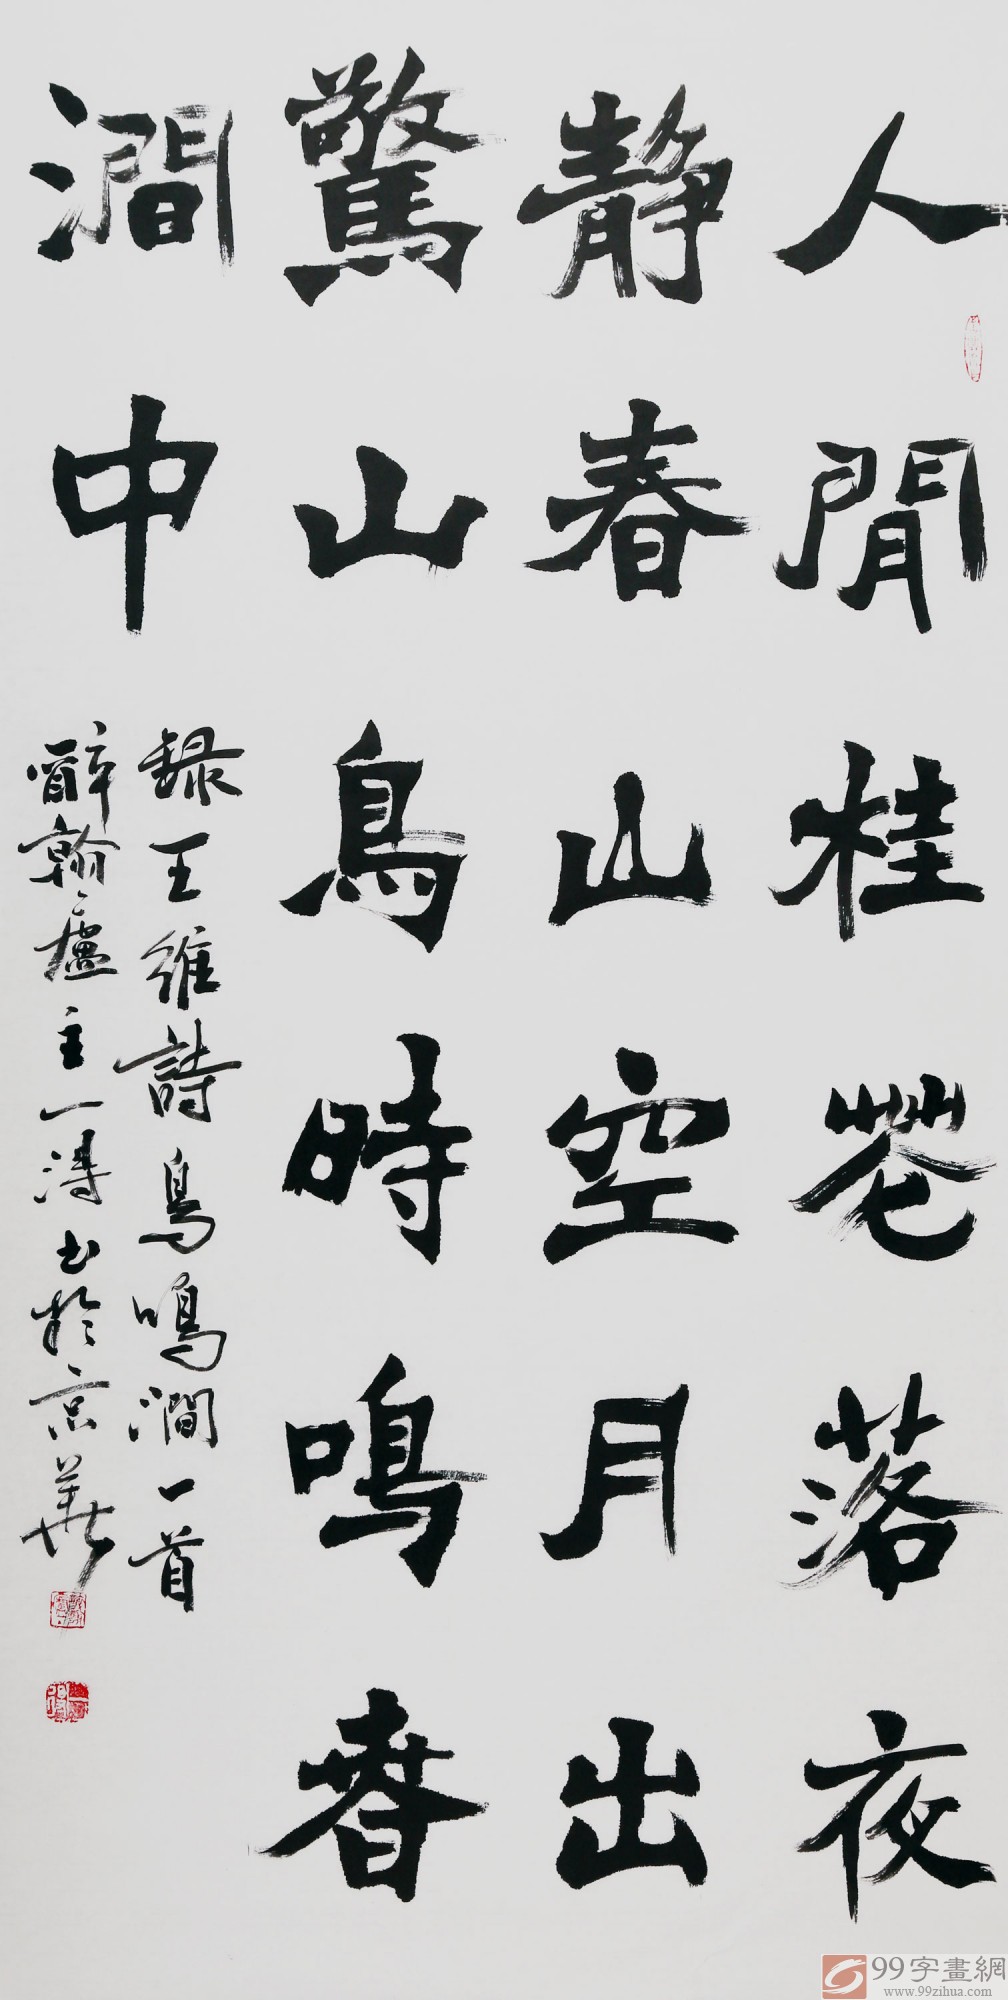 人閒桂花落夜
靜春山空月出
驚山鳥時鳴春
澗中
録王維詩鳥鳴澗一首
醉翰廬主一濤书於京華
99字畫網
www.99zihua.com